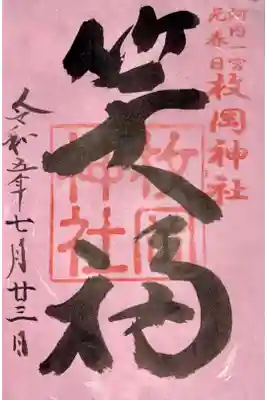 河内一宮
元春日
枚岡神社
笑福
枚岡
神社
令和五年七月廿三日